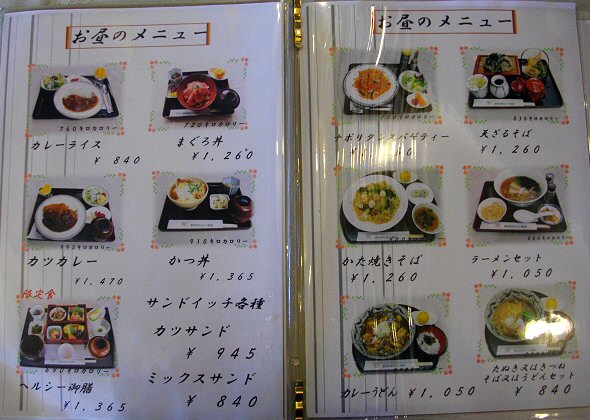 お昼のメニュー
760キロカロリー
カレーライス
¥ 840
720キロカロリー
まぐろ丼
¥1,260
995キロカロリー
カツカレー
¥1,470
910キロカロリー
かつ丼
¥1,365
限定食
690キロカロリー
ヘルシー御膳
¥1,365
サンドイッチ各種
カツサンド
¥ 945
ミックスサンド
¥ 840
お昼のメニュー
760キロカロリー
ナポリタンスパゲティー
830キロカロリー
天ざるそば
¥1,260
かた焼きそば
¥1,260
ラーメンセット
¥1,050
カレーうどん ¥1,050
たぬき又はきつね
そば又はうどんセット
¥ 840